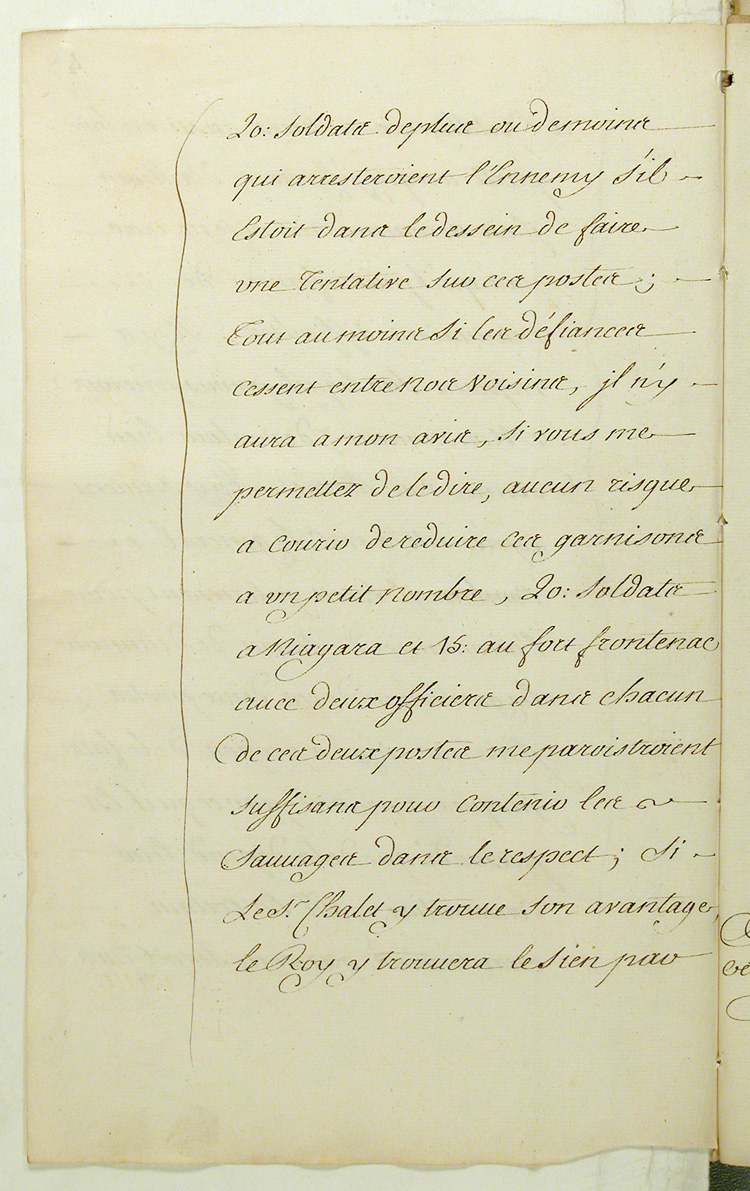 20: soldats deplus ou demoins
qui arresteroient l'Ennemy s'il
Estoit dans ledessein de faire
vne Tentative sur ces postes;
Tout aumoins si les défiances
cessent entre nos voisins, jl n'y
aura a mon avis, si vous me
permettez de le dire, aucun risque
a courir de reduire ces garnisons
a vn petit nombre, 20: soldats
a Niagara et 15: au fort frontenac
avec deux officiers dans chacun
de ces deux postes me paroistroient
suffisans pour contenir les
sauvages dans le respect; si
Le Sr. Chalet y trouve son avantage,
le Roy y trouvera le sien par